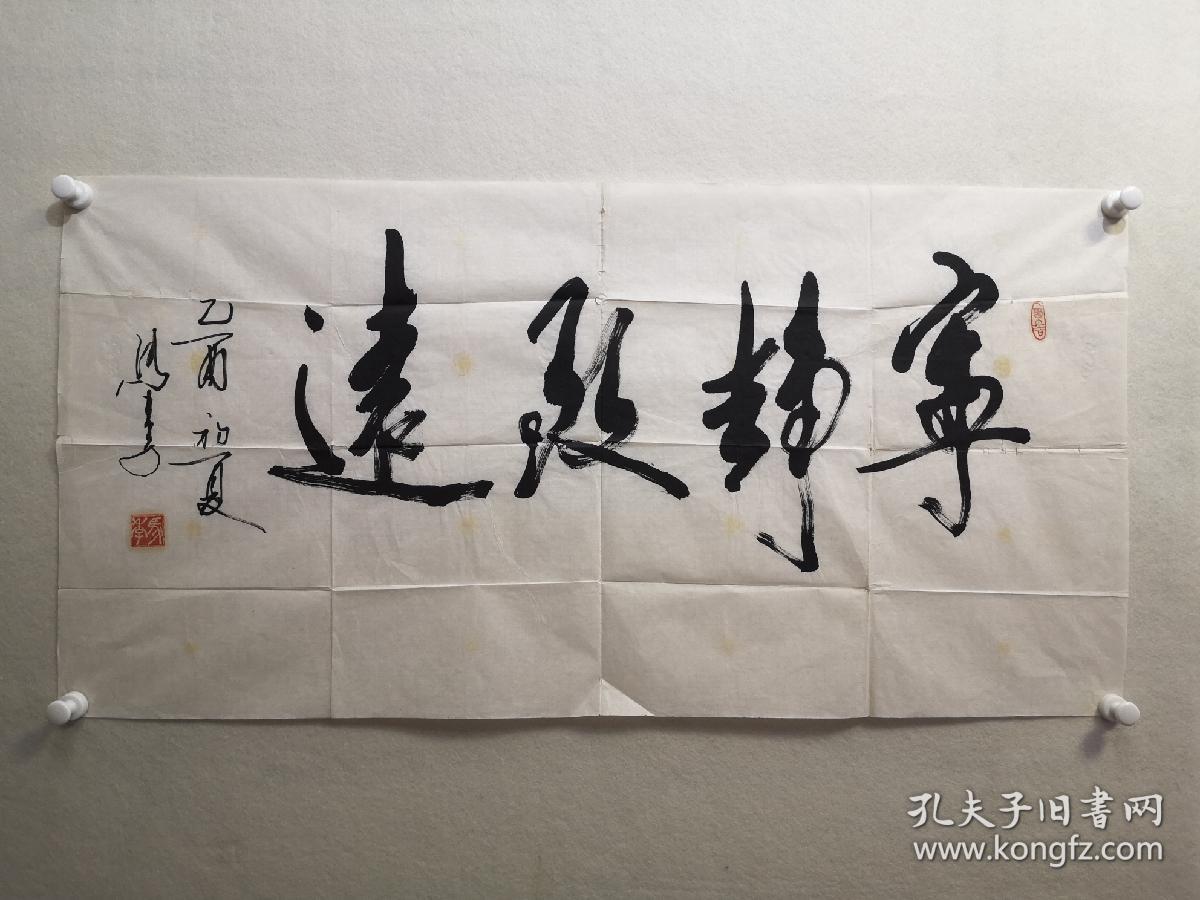 寧靜致遠
乙酉初夏
孔夫子旧書网
www.kongfz.com